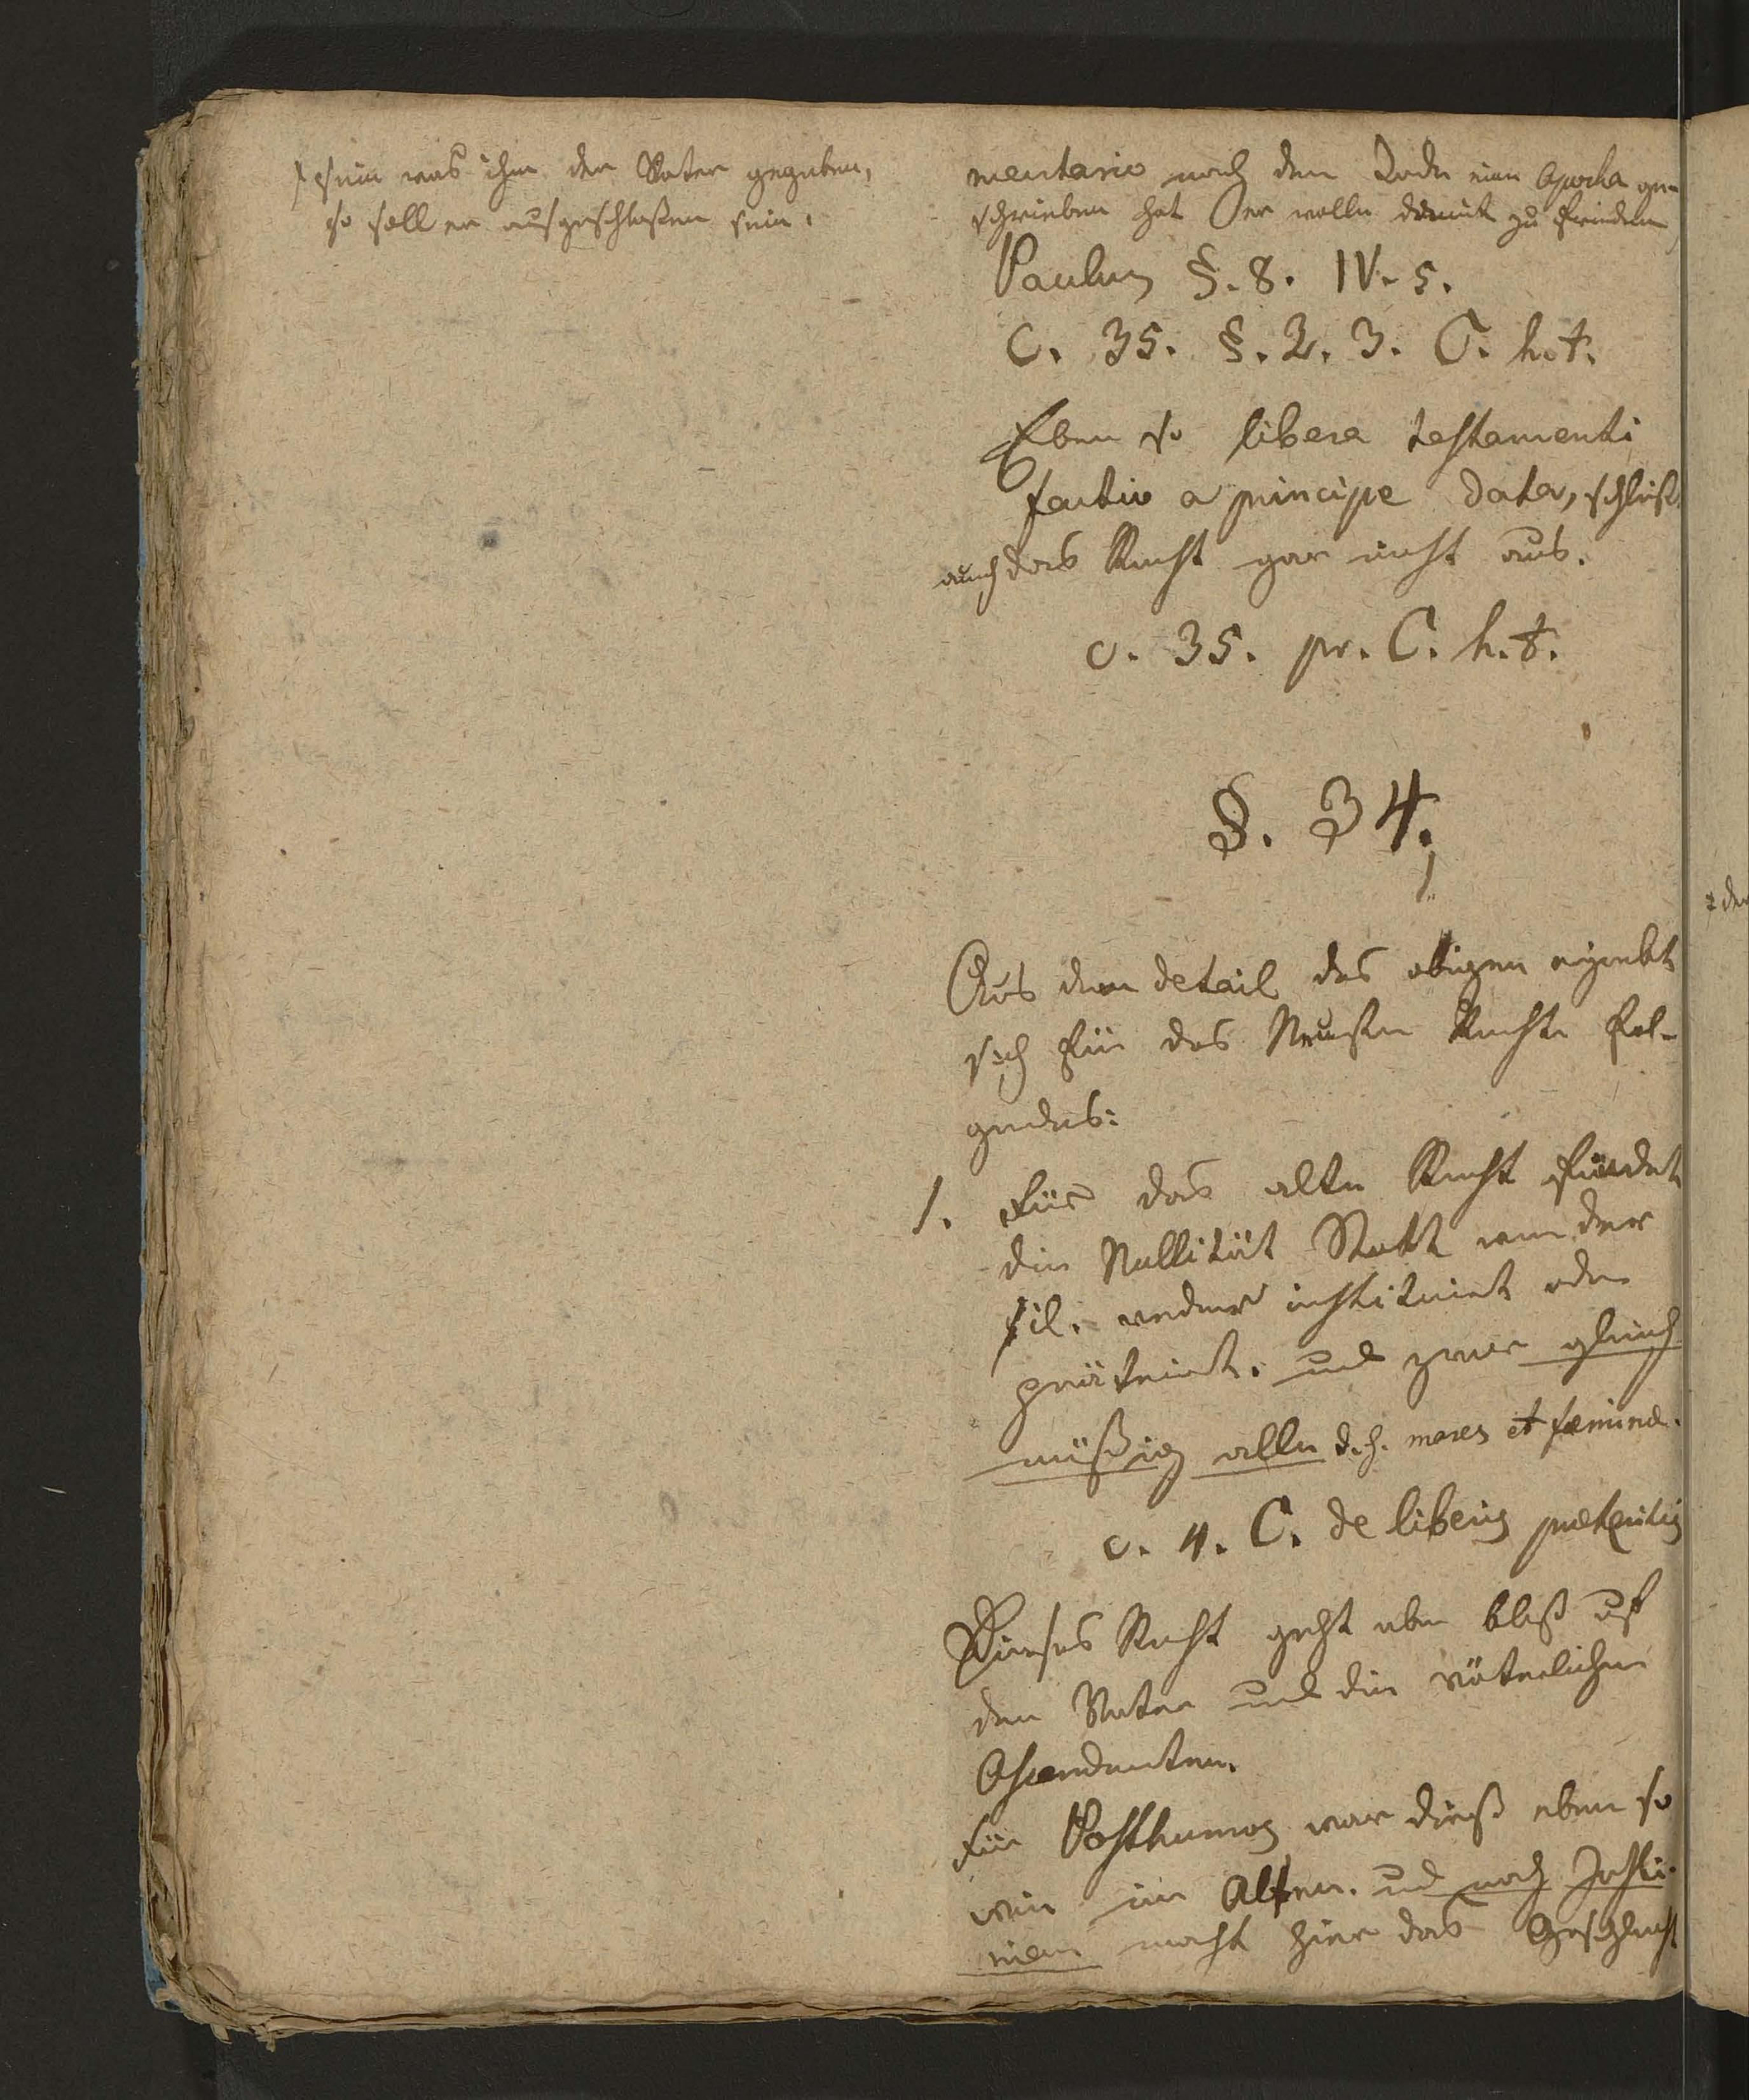 sein was ihm der Vater gegeben,
so soll er ausgeschloßen sein.
mentario nach dem Tode eine Apocha ge-
schrieben hat er wolle damit zu frieden
Paulus §. 8. IV. 5.
C. 35. §. 2. 3. C. h. t.
Eben so libera testamenti
factio a principe data, schließt
auch das Recht gar nicht aus.
c. 35. pr. C. h. t.
§. 34.
Aus dem detail des obigen ergiebt
sich für das Neuste Recht fol-
gendes:
1. Für das alte Recht findet
die Nullität Statt wenn der
fil. weder instituirt oder
präterirt. und zwar gleich
mäßig alle d. h. mares et feminae.
c. 4. C. de liberis praeteritis
Dieses Recht geht aber bloß auf
den Vater und die väterlichen
Ascendenten.
Für Posthumos war dieß eben so
wie im Alten. und nach Justi-
nian macht hier das Geschlecht